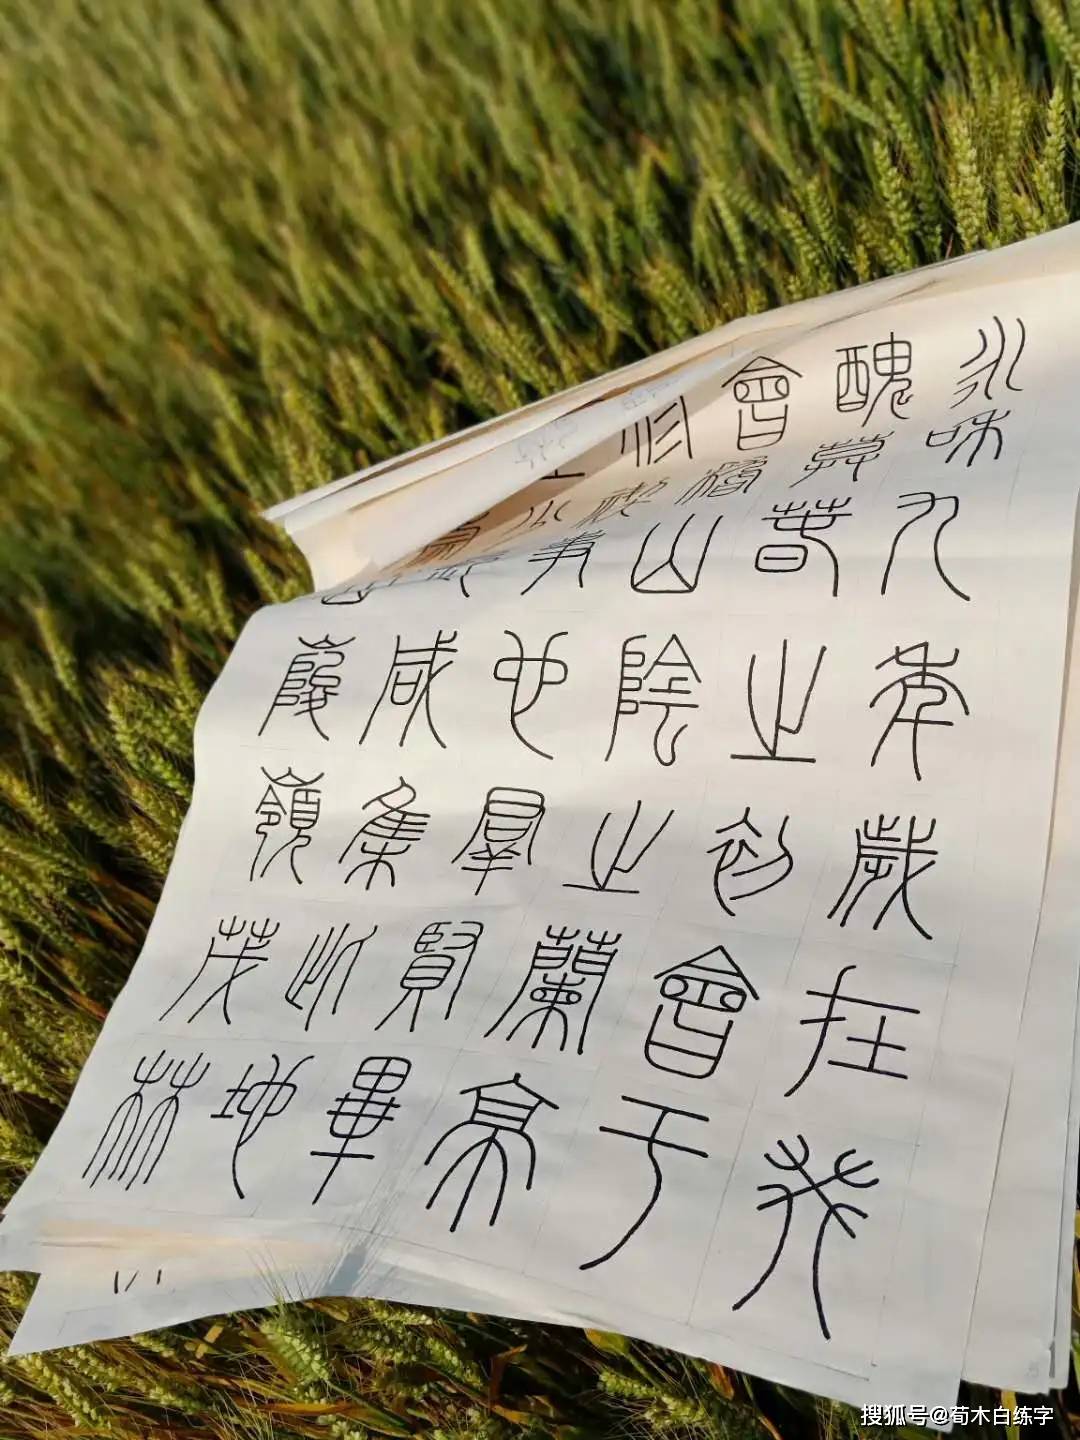 永和九年歲在癸
醜莫春之初會于
會稽山陰之蘭亭
修禊事也羣賢畢
少長咸集此地
山峻嶺茂林
搜狐号@荀木白练字